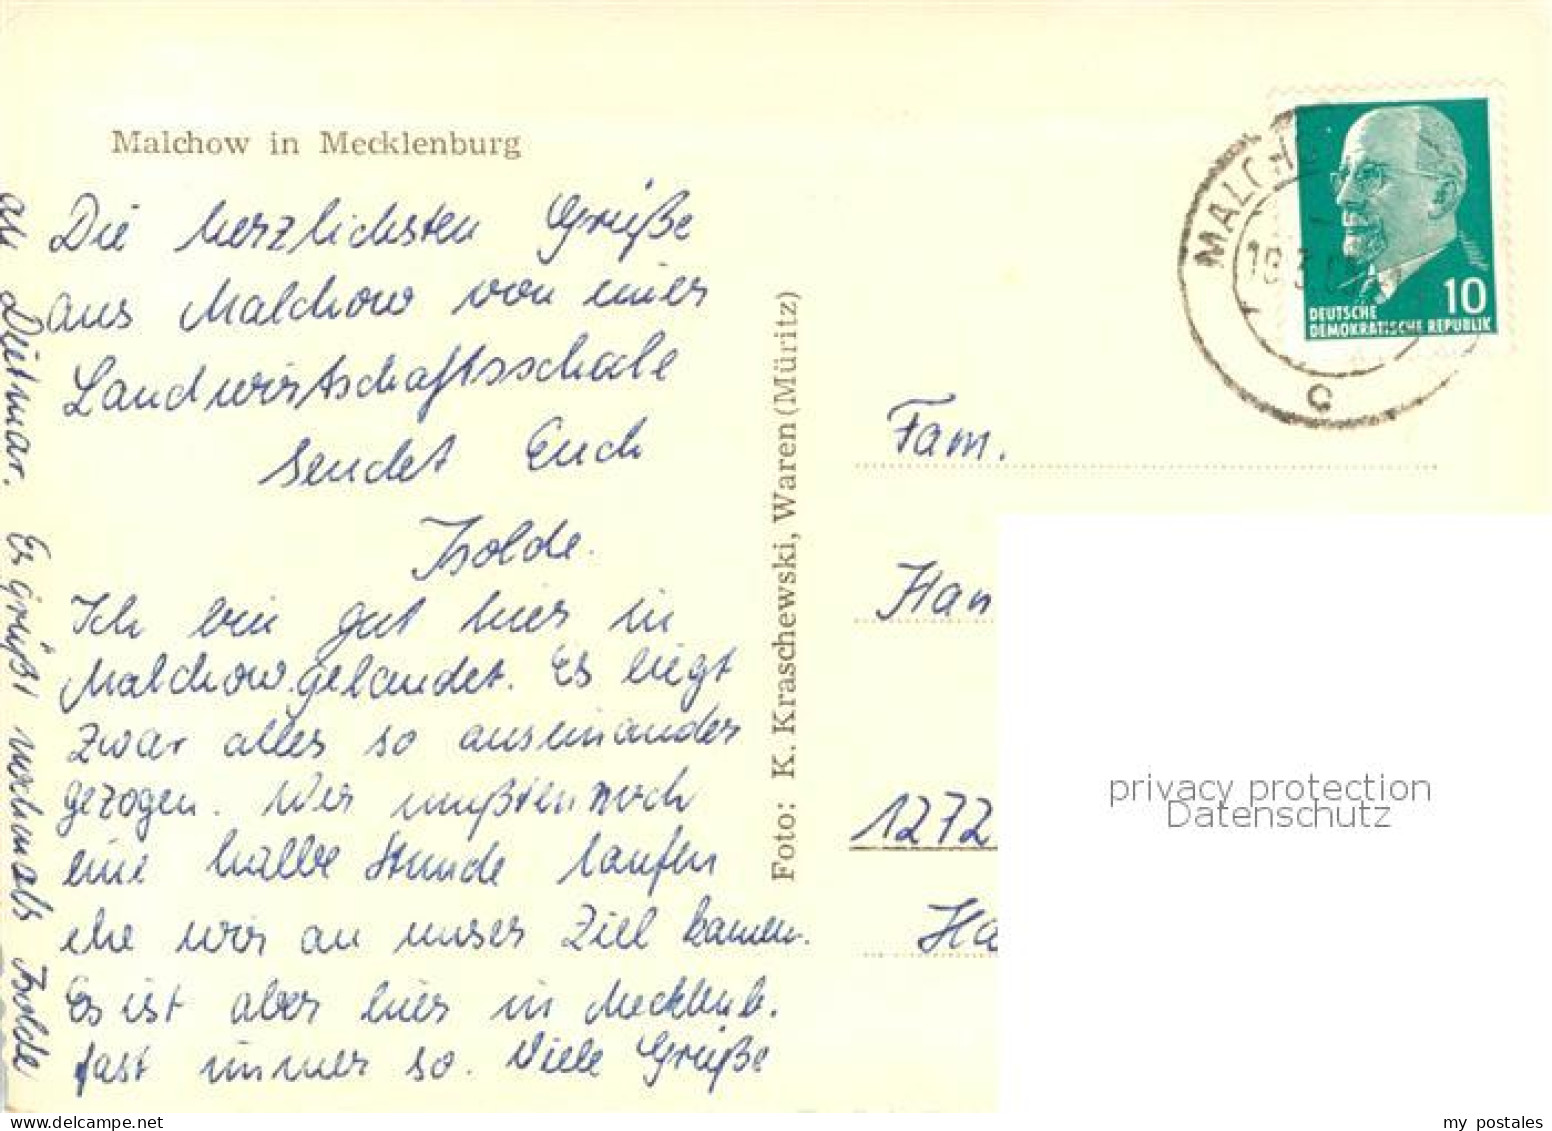 Malchow in Mecklenburg
Die herzlichsten Grüße
aus Malchow von einer
Landwirtschaftsschule
sendet Euch
Isolde.
Ich bin gut hier in
Malchow gelandet. Es liegt
zwar alles so auseinander
gezogen. Wir mußten noch
eine halbe Stunde laufen
ehe wir an unser Ziel kamen.
Es ist aber hier in Mecklenb.
fast immer so. Viele Grüße
an Dietmar. Es grüßt nochmals Isolde
Foto: K. Kraschewski, Waren (Müritz)
MALCHO
10
DEUTSCHE
DEMOKRATISCHE REPUBLIK
c
Fam.
Han
1272
Ha
privacy protection
Datenschutz
my postales